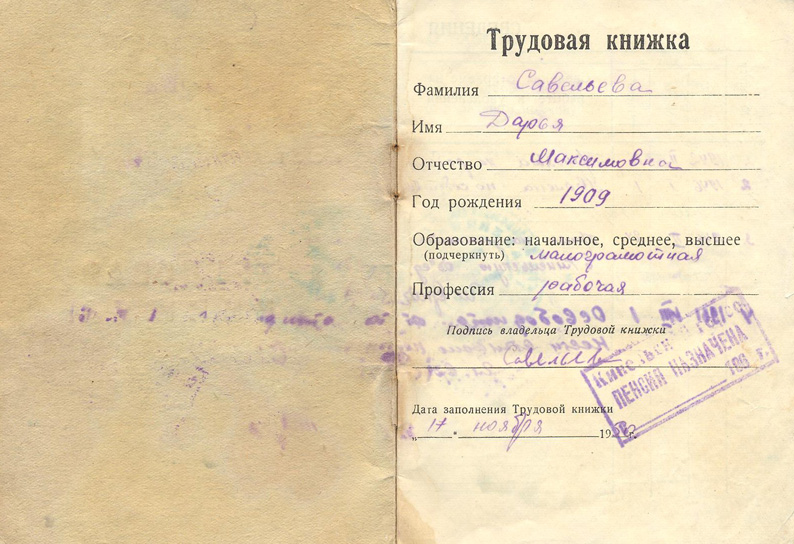 Трудовая книжка
Фамилия Савельева
Имя Дарья
Отчество Максимовна
Год рождения 1909
Образование: начальное, среднее, высшее
(подчеркнуть) малограмотная
Профессия рабочая
Подпись владельца Трудовой книжки
Савельева
ПЕНСИЯ НАЗНАЧЕНА
196 г.
Дата заполнения Трудовой книжки
„17" ноября 19 г.